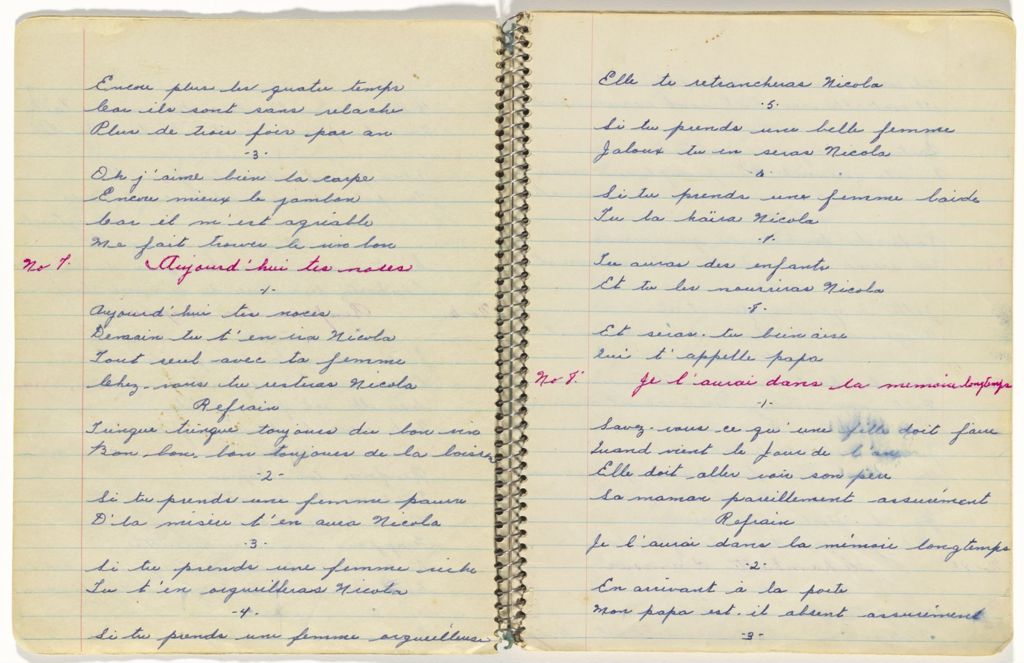 Encore plus les quatre temps
Car ils sont sans relache
Plus de trois fois par an
-3-
Oh j'aime bien la carpe
Encore mieux le jambon
Car il m'est agréable
Me fait trouver le vin bon
No 7. Aujourd'hui tes noces
-1-
Aujourd'hui tes noces
Demain tu t'en ira Nicola
Tout seul avec ta femme
Chez-vous tu resteras Nicola
Refrain
Tringue tringue toujours du bon vin
Bon bon, bon toujours de la boisson
-2-
Si tu prends une femme pauvre
D'la misère t'en aura Nicola
-3-
Si tu prends une femme riche
Tu t'en orgueilleras Nicola
-4-
Si tu prends une femme orgueilleuse
Elle te retrancheras Nicola
-5-
Si tu prends une belle femme
Jaloux tu en seras Nicola
-6-
Si tu prends une femme laide
Tu la haïra Nicola
-7-
Tu auras des enfants
Et tu les nourriras Nicola
-8-
Et seras-tu bien aise
Qui t'appelle papa
No 8. Je l'aurai dans la mémoire longtemps
-1-
Savez-vous ce qu'une fille doit faire
Quand vient le Jour de l'an
Elle doit aller voir son père
Sa maman pareillement assurément
Refrain
Je l'aurai dans la mémoire longtemps
-2-
En arrivant à la porte
Mon papa est-il absent assurément
-3-